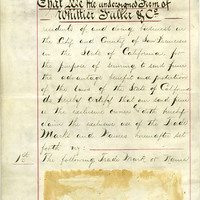 That We the undersigned Firm of
Whittier Fuller & Co
residents of and doing business in
the City and County of San Francisco
in the State of California for
the purpose of securing to said firm
the advantage benefit and protection
of the laws of the State of California
do hereby certify that our said firm
is the exclusive owner and hereby
claims the exclusive use of the Trade
Marks and Names hereinafter set
forth
1st The following Trade Mark or Name